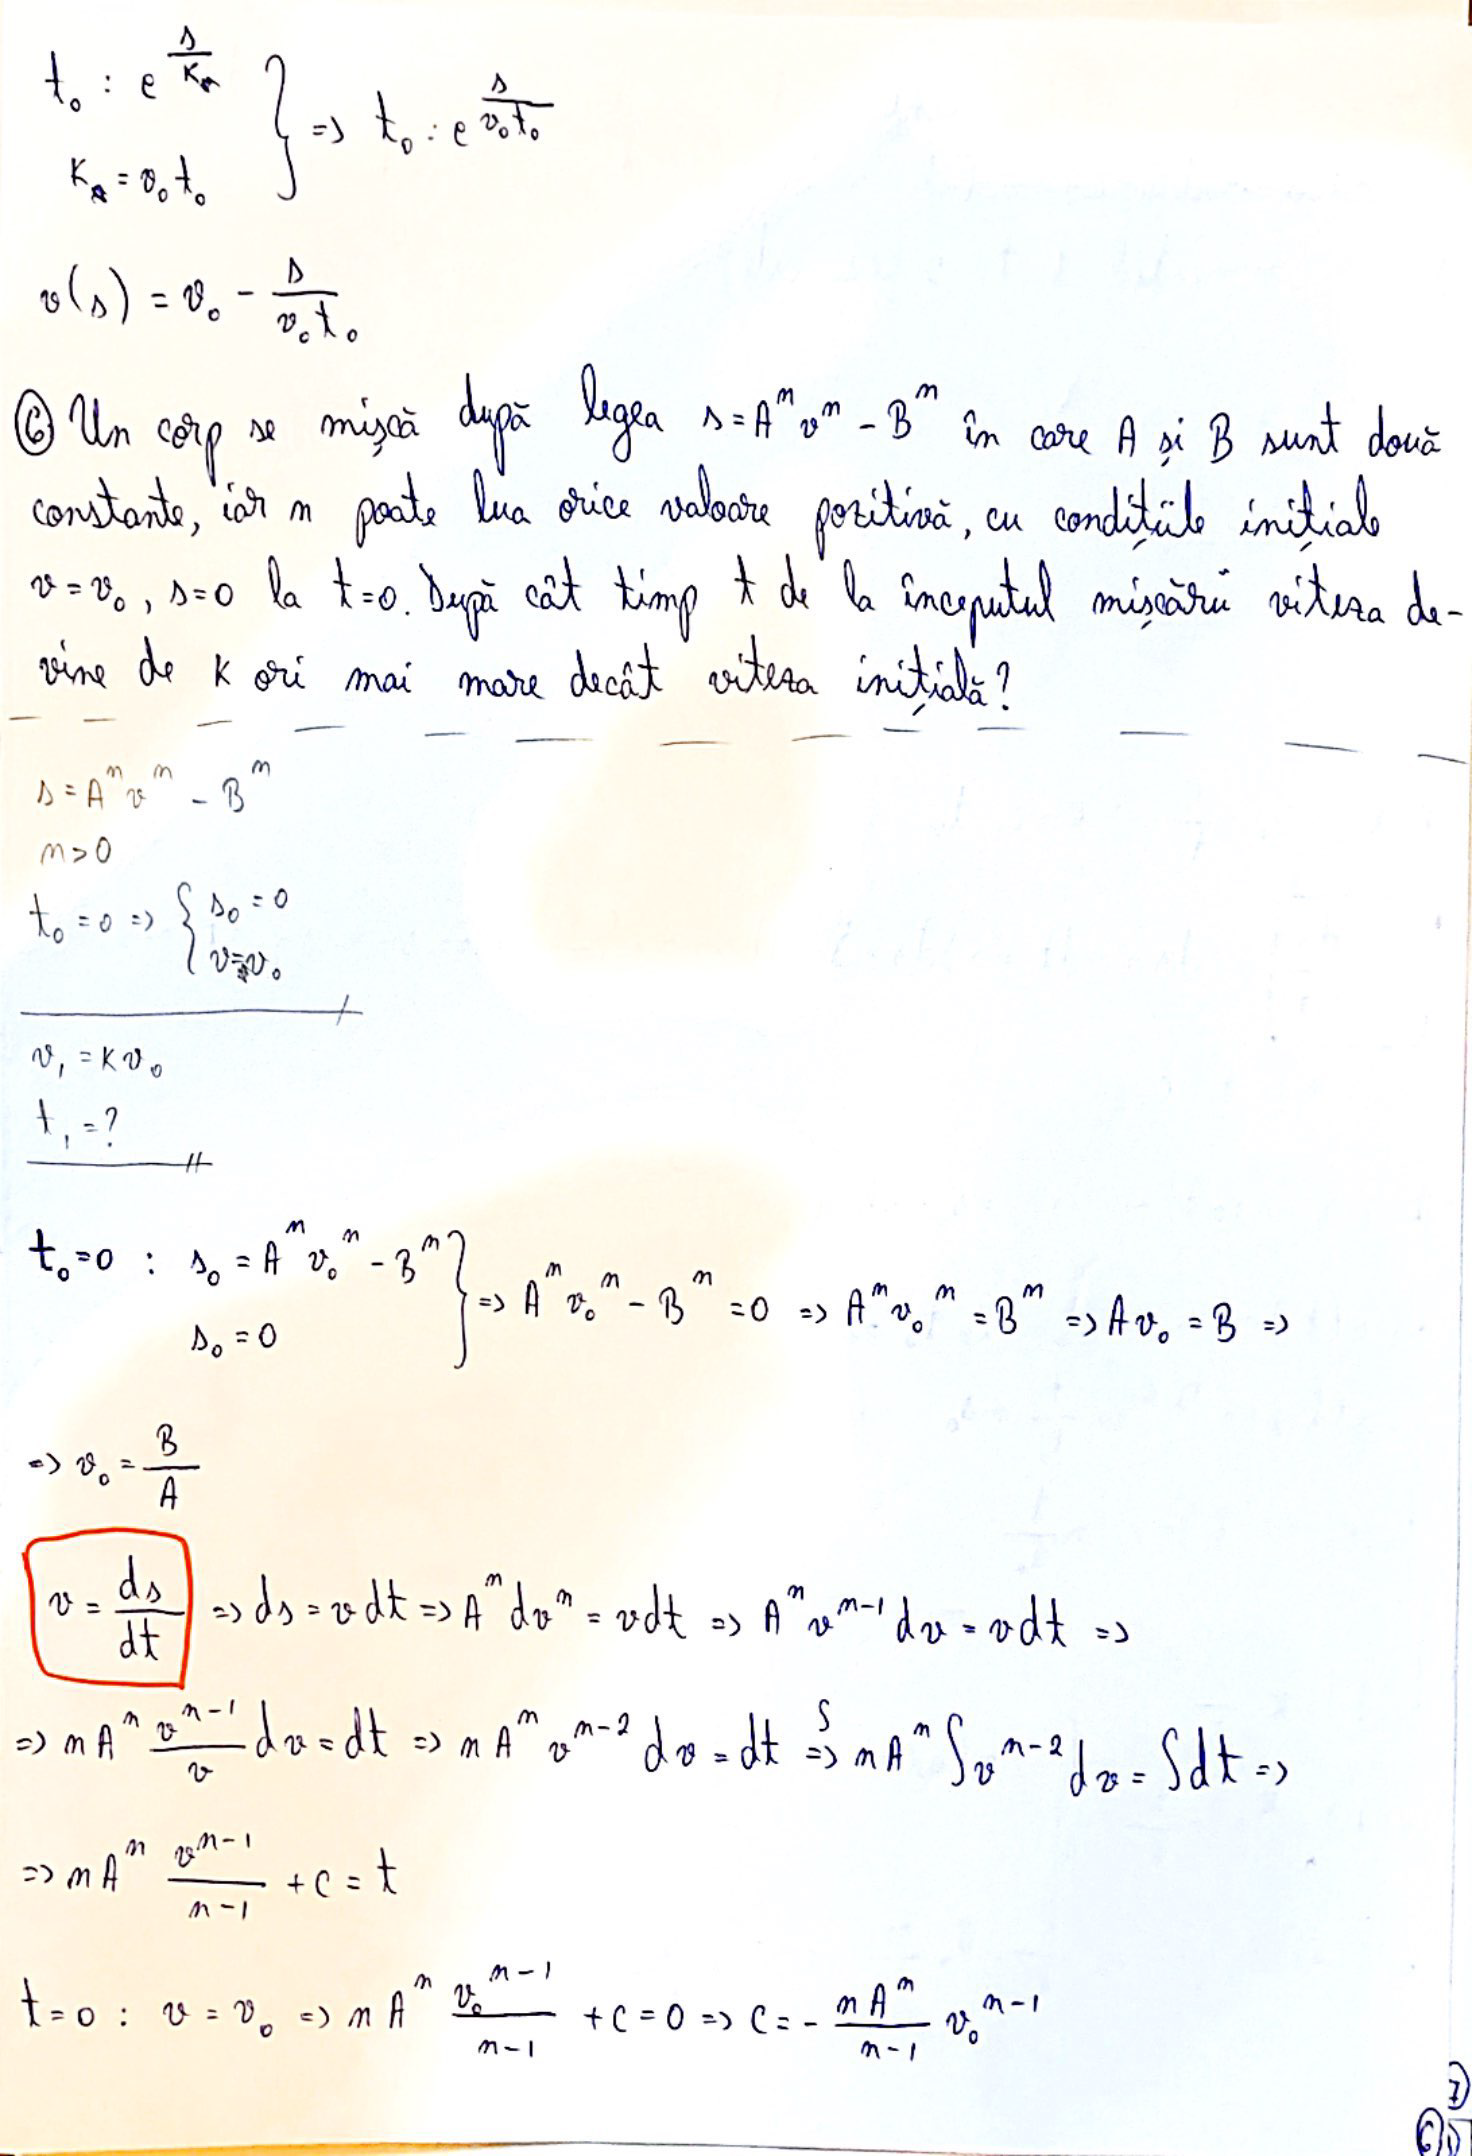 t₀ : e^(s/Kₛ)
Kₛ = v₀t₀ } => t₀ : e^(s/(v₀t₀))
v(s) = v₀ - s/(v₀t₀)
⑥ Un corp se mișcă după legea s=Aⁿvⁿ - Bⁿ în care A și B sunt două
constante, iar n poate lua orice valoare pozitivă, cu condițiile inițiale
v=v₀, s=0 la t=0. După cât timp t de la începutul mișcării viteza de-
vine de K ori mai mare decât viteza inițială?
s = Aⁿvⁿ - Bⁿ
n>0
t₀=0 => { s₀=0
v=v₀
v₁ = Kv₀
t₁ = ?
t₀=0 : s₀ = Aⁿv₀ⁿ - Bⁿ
s₀ = 0 } => Aⁿv₀ⁿ - Bⁿ = 0 => Aⁿv₀ⁿ = Bⁿ => Av₀ = B =>
=> v₀ = B/A
v = ds/dt => ds = v dt => Aⁿ dvⁿ = v dt => Aⁿvⁿ⁻¹ dv = v dt =>
=> nAⁿ (vⁿ⁻¹/v) dv = dt => nAⁿvⁿ⁻² dv = dt =>∫ nAⁿ ∫vⁿ⁻² dv = ∫dt =>
=> nAⁿ vⁿ⁻¹/(n-1) + C = t
t=0 : v = v₀ => nAⁿ v₀ⁿ⁻¹/(n-1) + C = 0 => C = - nAⁿ/(n-1) v₀ⁿ⁻¹